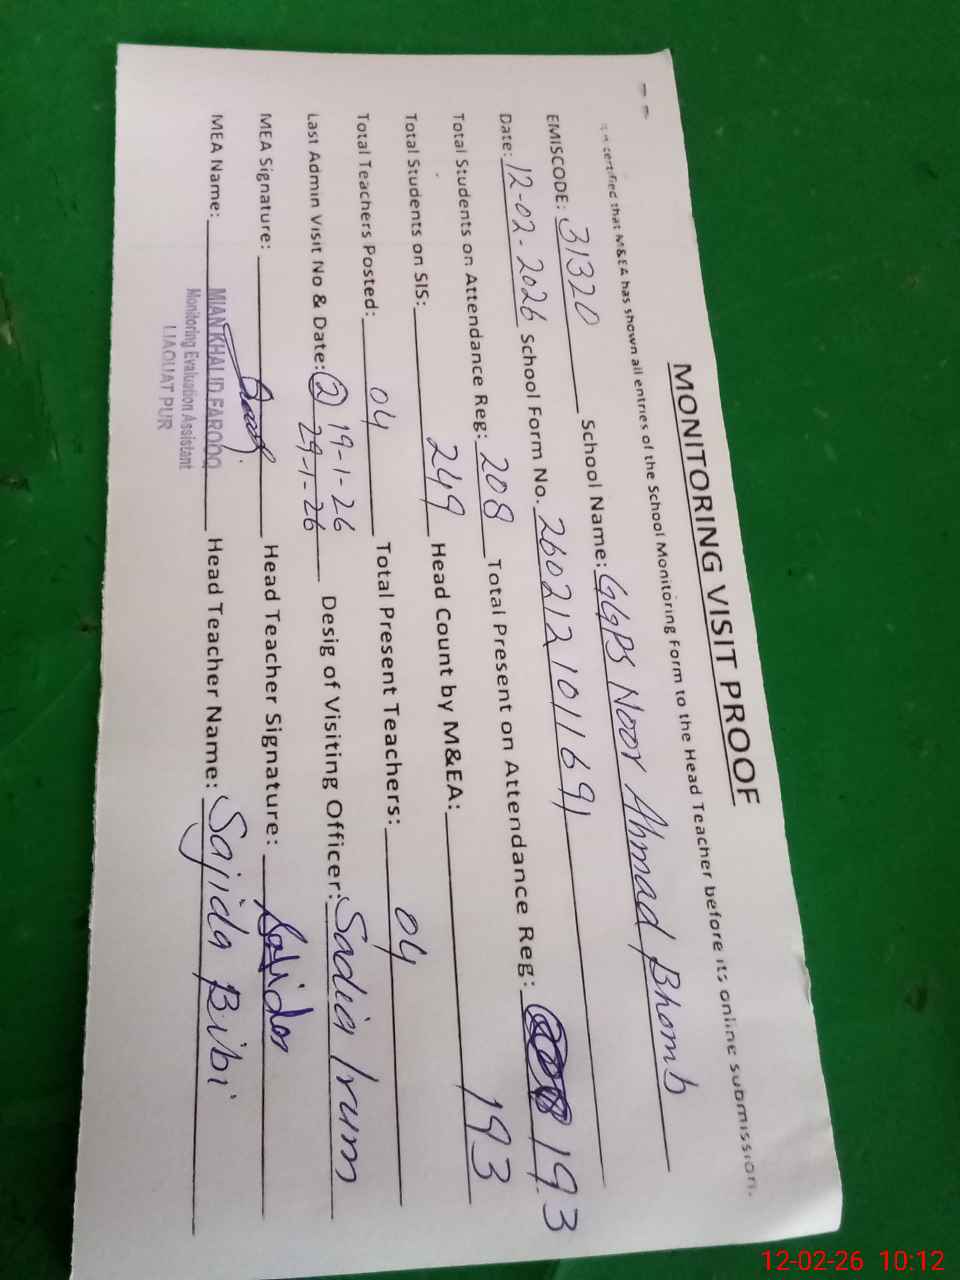 MONITORING VISIT PROOF
certified that M&EA has shown all entries of the School Monitoring Form to the Head Teacher before its online submission.
EMISCODE: 31320 School Name: GGPS Noor Ahmad Bhomb
Date: 12-02-2026 School Form No. 260212101691
Total Students on Attendance Reg: 208 Total Present on Attendance Reg: 193
Total Students on SIS: 249 Head Count by M&EA: 193
Total Teachers Posted: 04 Total Present Teachers: 04
Last Admin Visit No & Date: 2 19-1-26 Desig of Visiting Officer: Sadia Irum
29-1-26
MEA Signature: Head Teacher Signature: Sajida
MEA Name: MIAN KHALID FAROOQ Head Teacher Name: Sajida Bibi
Monitoring Evaluation Assistant
LIAQUAT PUR
12-02-26 10:12